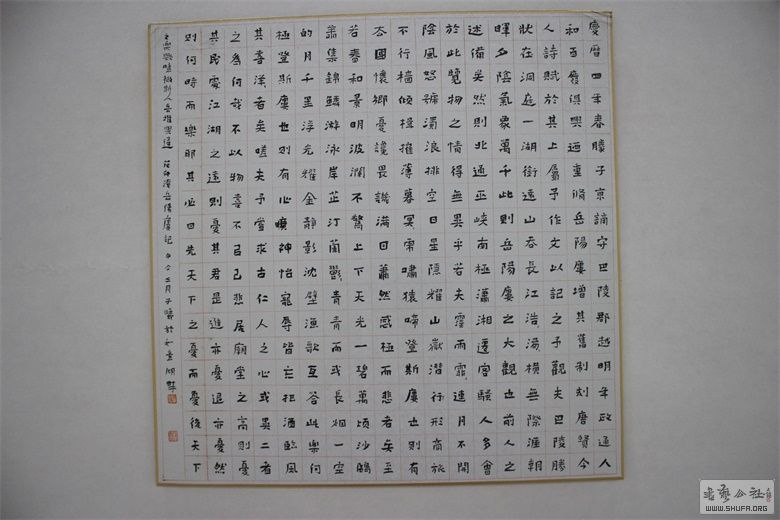 慶曆四年春滕子京謫守巴陵郡越明年政通人
和百廢俱興迺重脩岳陽樓增其舊制刻唐賢今
人詩賦於其上屬予作文以記之予觀夫巴陵勝
狀在洞庭一湖銜遠山吞長江浩湯橫無際涯朝
暉夕陰氣象萬千此則岳陽樓之大觀也前人之
述備矣然則北通巫峽南極瀟湘遷客騷人多會
於此覽物之情得無異乎若夫霪雨霏連月不開
陰風怒號濁浪排空日星隱耀山嶽潛行形商旅
不行檣傾楫摧薄暮冥虎嘯猿啼登斯樓也則有
去國懷鄉憂讒畏譏滿目蕭然感極而悲者矣至
若春和景明波瀾不驚上下天光一碧萬頃沙鷗
翔集錦鱗游泳岸芷汀蘭鬱青青而或長烟一空
皓月千里浮光耀金靜影沈璧漁歌互答此樂何
極登斯樓也則有心曠神怡寵辱皆忘把酒臨風
其喜洋者矣嗟夫予嘗求古仁人之心或異二者
之為何哉不以物喜不以己悲居廟堂之高則憂
其民處江湖之遠則憂其君是進亦憂退亦憂然
則何時而樂耶其必曰先天下之憂而憂後天下
之樂歟噫微斯人吾誰與歸 范仲淹岳陽樓記
书艺公社
WWW.SHUFA.ORG